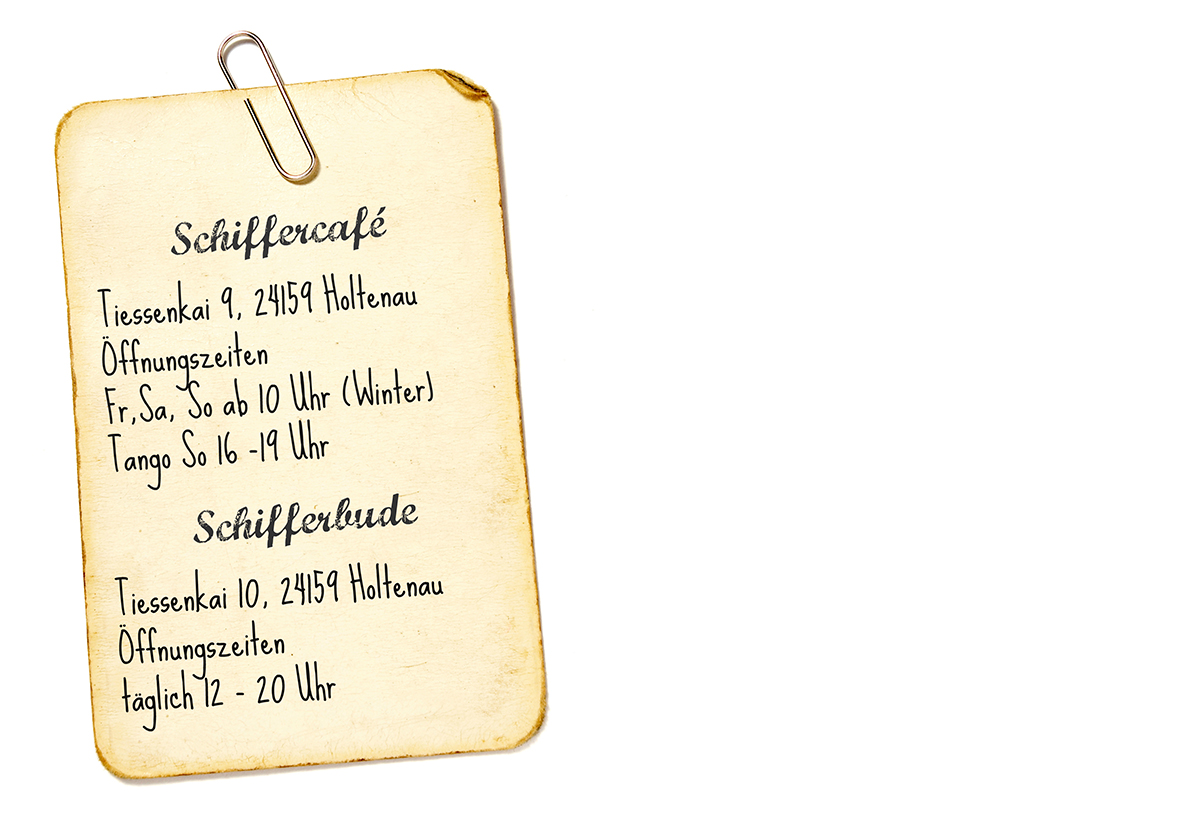 Schiffercafé
Tiessenkai 9, 24159 Holtenau
Öffnungszeiten
Fr,Sa, So ab 10 Uhr (Winter)
Tango So 16 -19 Uhr
Schifferbude
Tiessenkai 10, 24159 Holtenau
Öffnungszeiten
täglich 12 - 20 Uhr